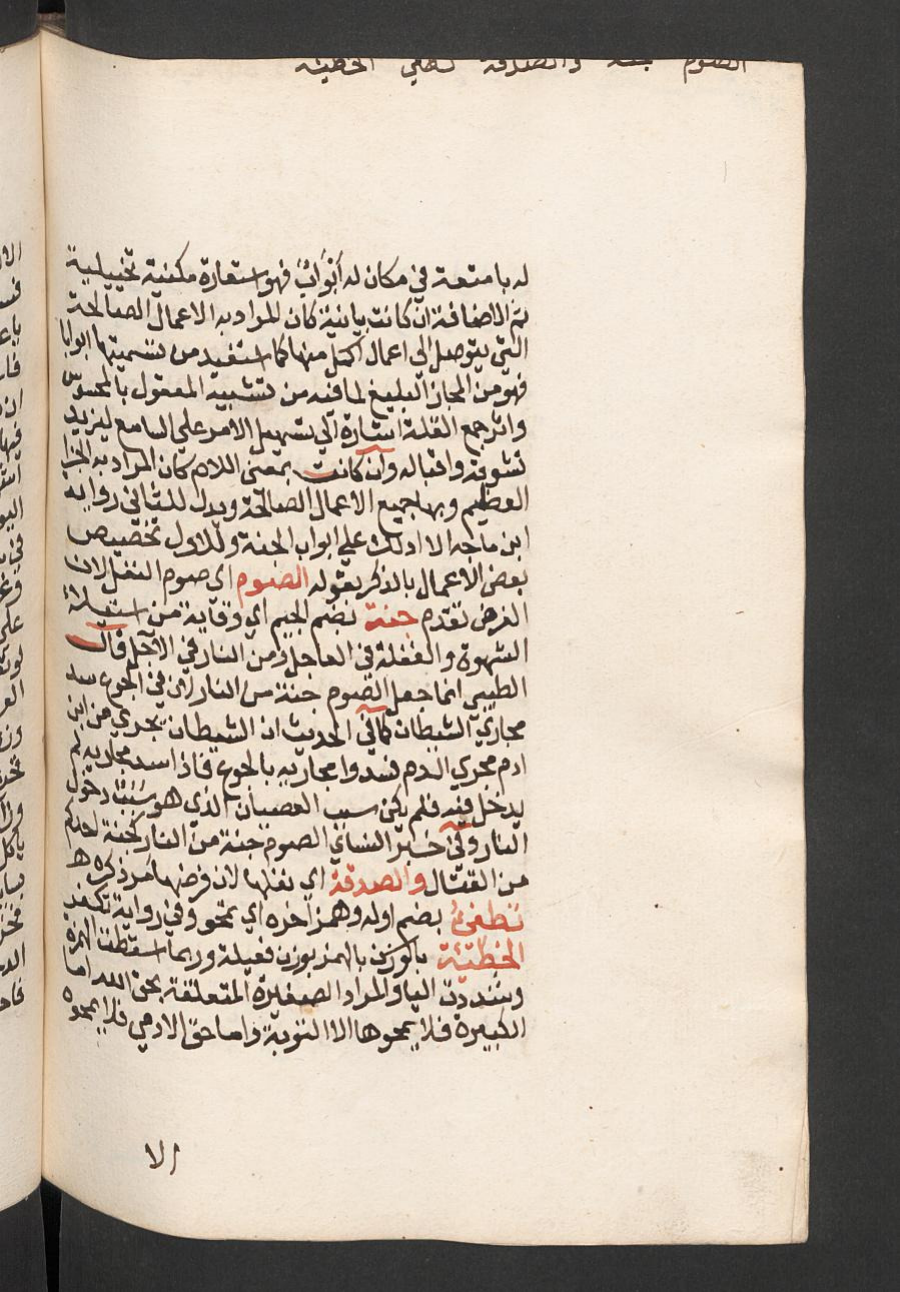 الصوم جنة والصدقة تطفي الخطيئة
له بامتعة في مكان له أبوابٌ فهو استعارة مكنية تخييلية
ثم الاضافة ان كانت بيانية كان المراد به الاعمال الصالحة
التي يتوصل الي اعمال اكمل منها كما استفيد من تسميتها ابوابا
فهو من المجاز البليغ لما فيه من تشبيه المعقول بالمحسوس
واثر جمع القلة اشارة الي تسهيل الامر علي السامع ليزيد
تشوقه واقباله وان كانت بمعني اللام كان المراد به الخير
العظيم وبها جميع الاعمال الصالحة ويدل للثاني رواية
ابن ماجه الا ادلك علي ابواب الجنة وللاول تخصيص
بعض الاعمال بالذكر بقوله الصوم اي صوم النفل لان
الفرض تقدم جنة بضم الجيم اي وقاية من استعلاء
الشهوة والغفلة في العاجل ومن النار في الآجل قال
الطيبي انما جعل الصوم جنة من النار لان في الجوع سد
مجاري الشيطان كما في الحديث ان الشيطان يجري من ابن
ادم مجري الدم فسدوا مجاريه بالجوع فاذا سد مجاريه لم
يدخل فيه فلم يكن سبب العصيان الذي هو سبب دخول
النار وفي خبر النسائي الصوم جنة من النار كجنة احدكم
من القتال والصدقة اي نفلها لان فرضها مر ذكره
تطفئ بضم اوله وهمز اخره اي تمحو وفي رواية تكفر
الخطيئة بالهمز بوزن فعيلة وربما اسقطت الهمزة
وشددت اليا والمراد الصغيرة المتعلقة بحق الله اما
الكبيرة فلا يمحوها الا التوبة واما حق الادمي فلا يمحوه
الا